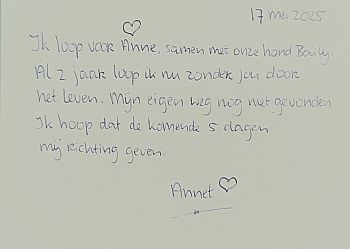 17 mei 2025
Ik loop voor Anne, samen met onze hond Baily.
Al 2 jaar loop ik nu zonder jou door
het leven. Mijn eigen weg nog niet gevonden
Ik hoop dat de komende 5 dagen
mij richting geven.
Annet